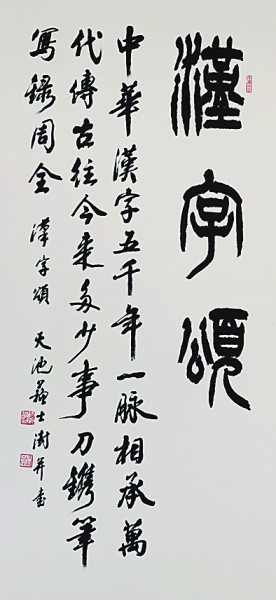 漢字頌
中華漢字五千年一脈相承萬
代傳古往今來多少事刀鐫筆
寫錄周全 漢字頌 天池蘇士澍并書